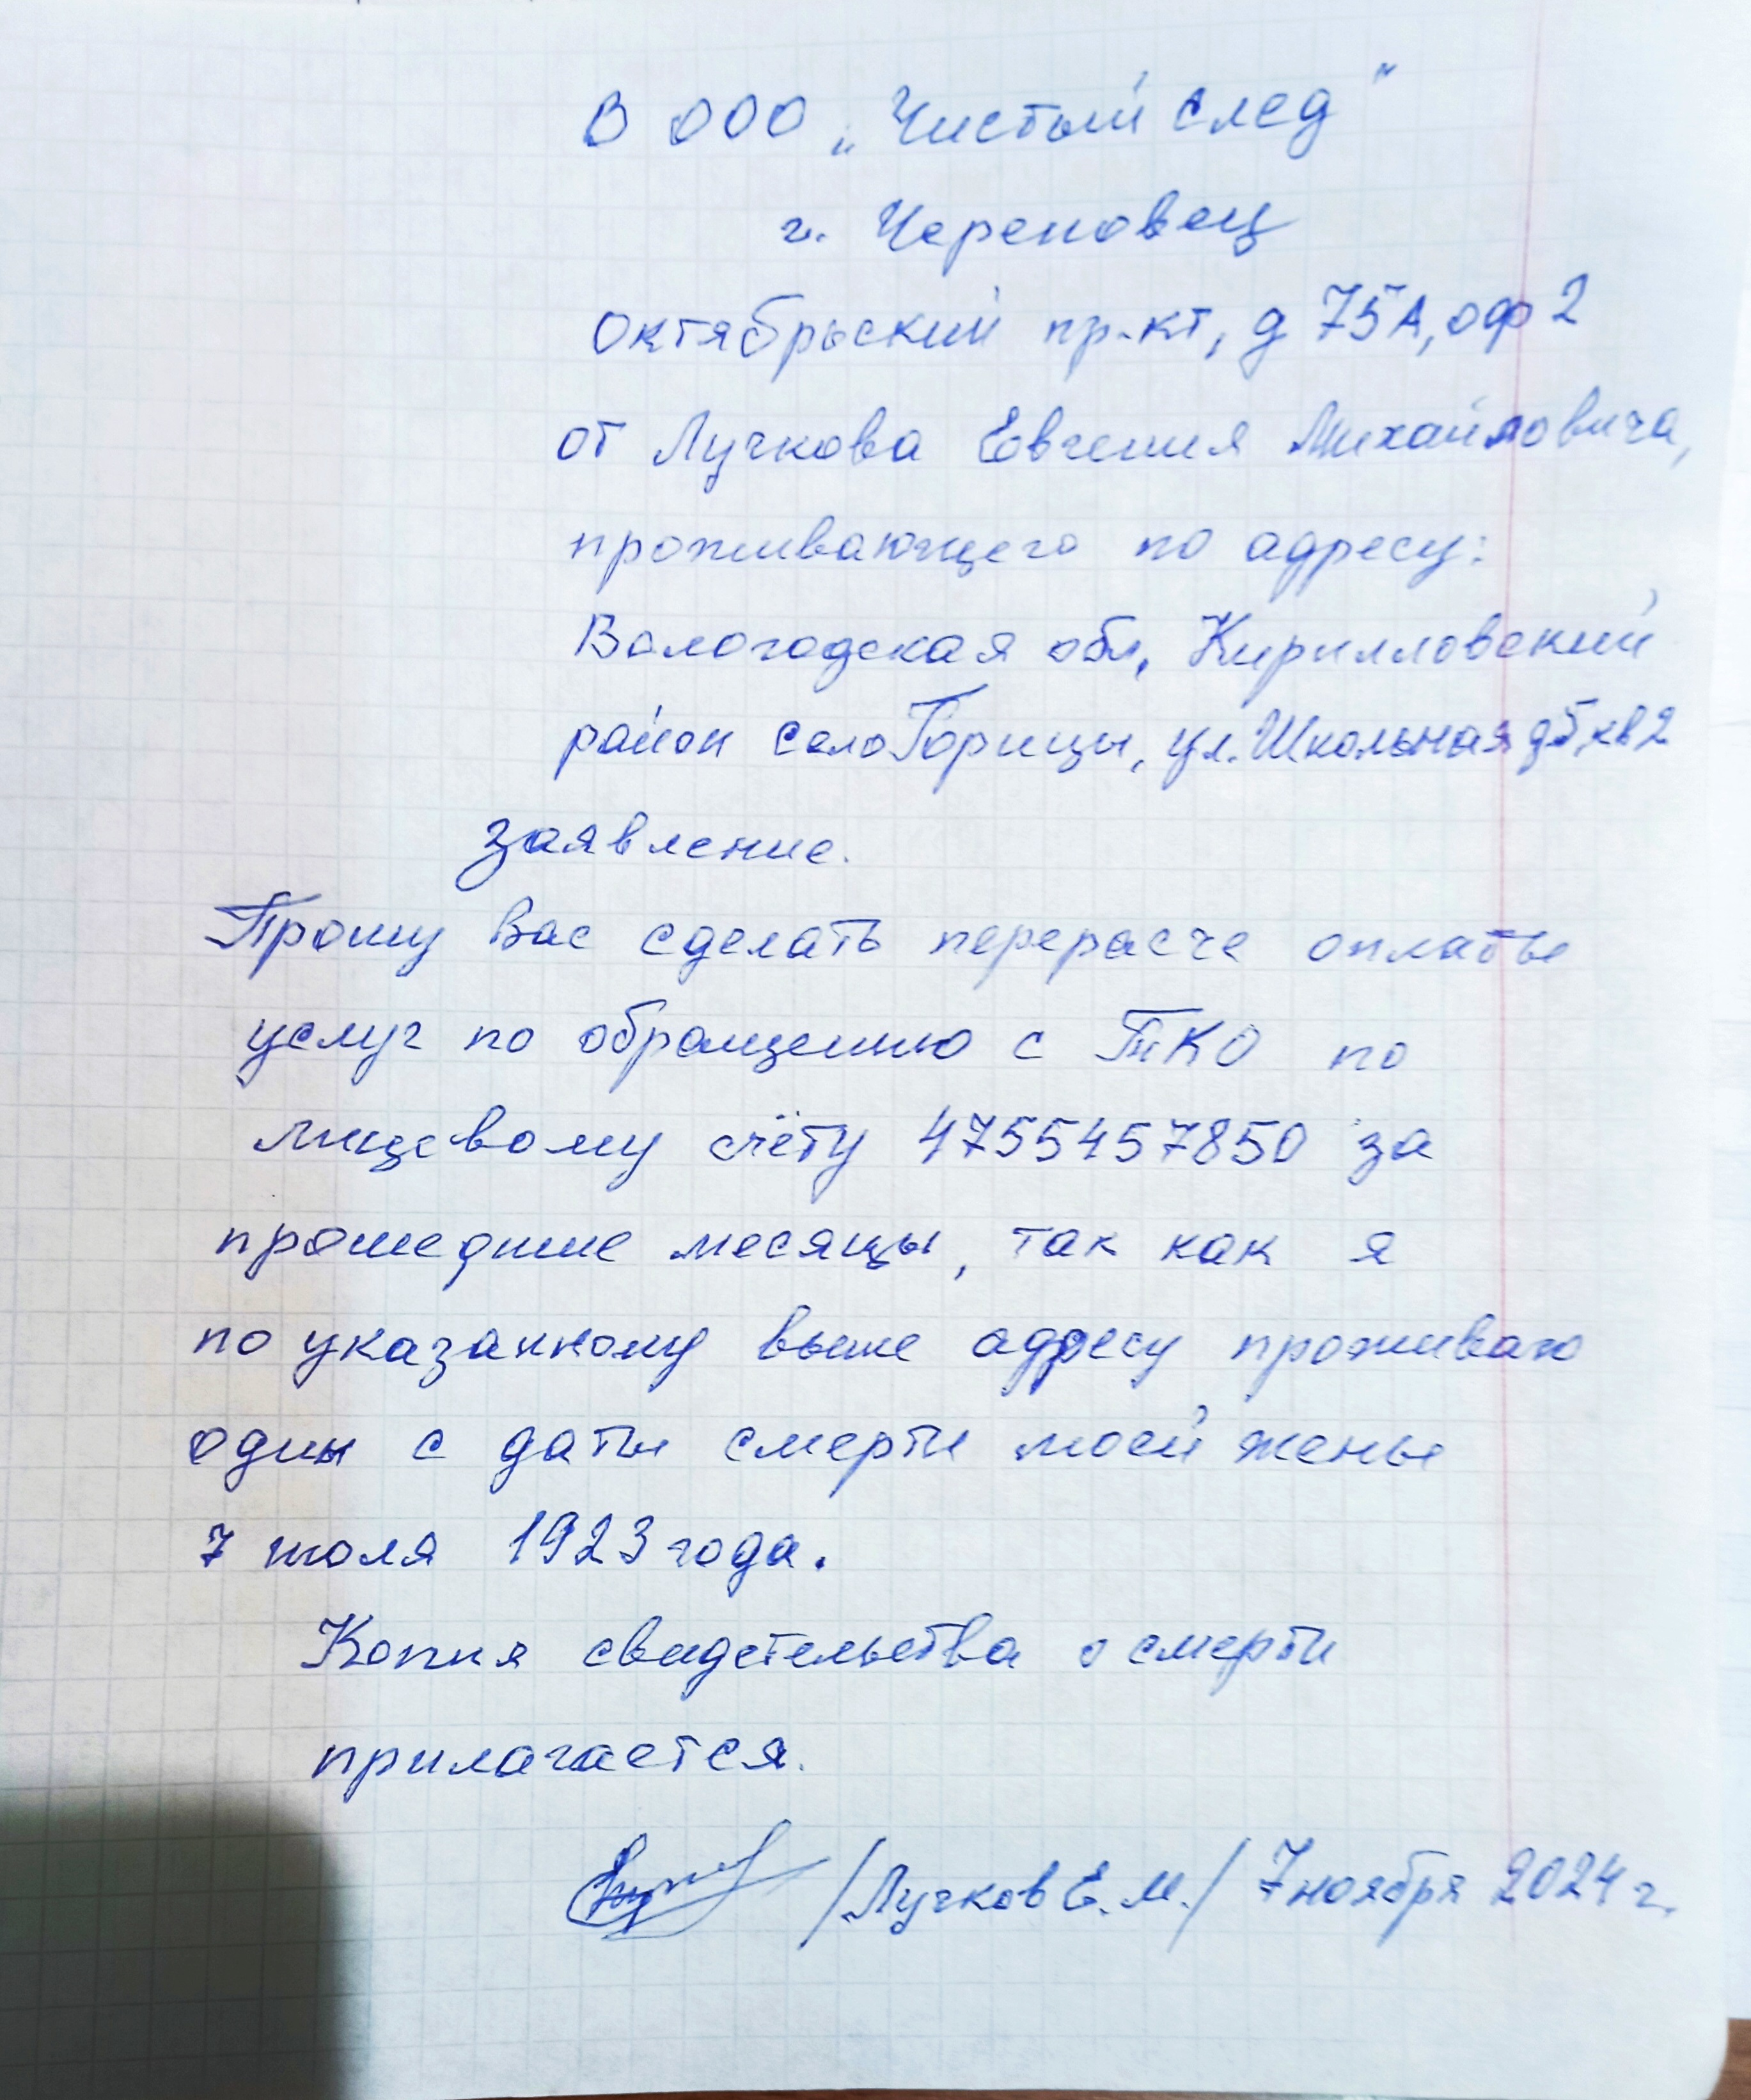 В ООО „Чистый след"
г. Череповец
Октябрьский пр-кт, д 75А, оф 2
от Лучкова Евгения Михайловича,
проживающего по адресу:
Вологодская обл, Кирилловский
район село Горицы, ул. Школьная д5, кв 2
заявление.
Прошу Вас сделать перерасче оплаты
услуг по обращению с ТКО по
лицевому счёту 4755457850 за
прошедшие месяцы, так как я
по указанному выше адресу проживаю
один с даты смерти моей жены
7 июля 1923 года.
Копия свидетельства о смерти
прилагается.
/Лучков Е. М./ 7 ноября 2024 г.